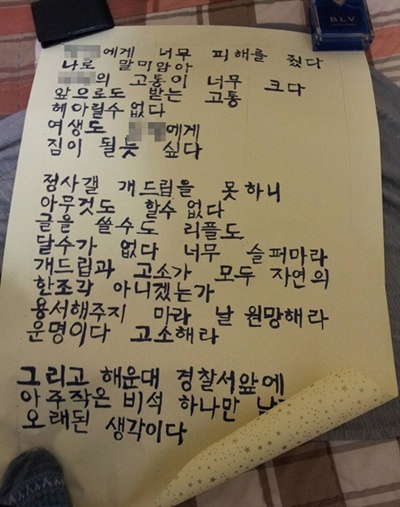 에게 너무 피해를 줬다
나로 말미암아
의 고통이 너무 크다
앞으로도 받는 고통
헤아릴수 없다
여생도 에게
짐이 될듯 싶다
정사갤 개드립을 못하니
아무것도 할수 없다
글을 쓸수도 리플도
달수가 없다 너무 슬퍼마라
개드립과 고소가 모두 자연의
한조각 아니겠는가
용서해주지 마라 날 원망해라
운명이다 고소해라
그리고 해운대 경찰서앞에
아주작은 비석 하나만
오래된 생각이다
BLV